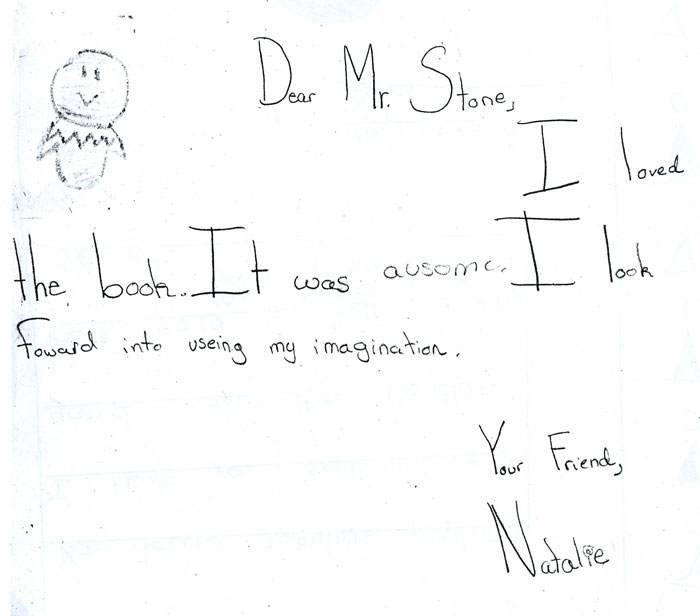 Dear Mr. Stone,
I loved
the book. It was ausome. I look
foward into useing my imagination.
Your Friend,
Natalie